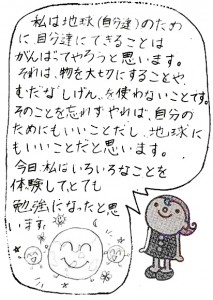 私は地球(自分達)のため
に自分達にできることは
がんばってやろうと思います。
それは、物を大切にすることや、
むだな「しげん」を使わないことです。
そのことを忘れずやれば、自分の
ためにもいいことだし、地球に
もいいことだと思います。
今日、私はいろいろなことを
体験して、とても
勉強になったと思
います。